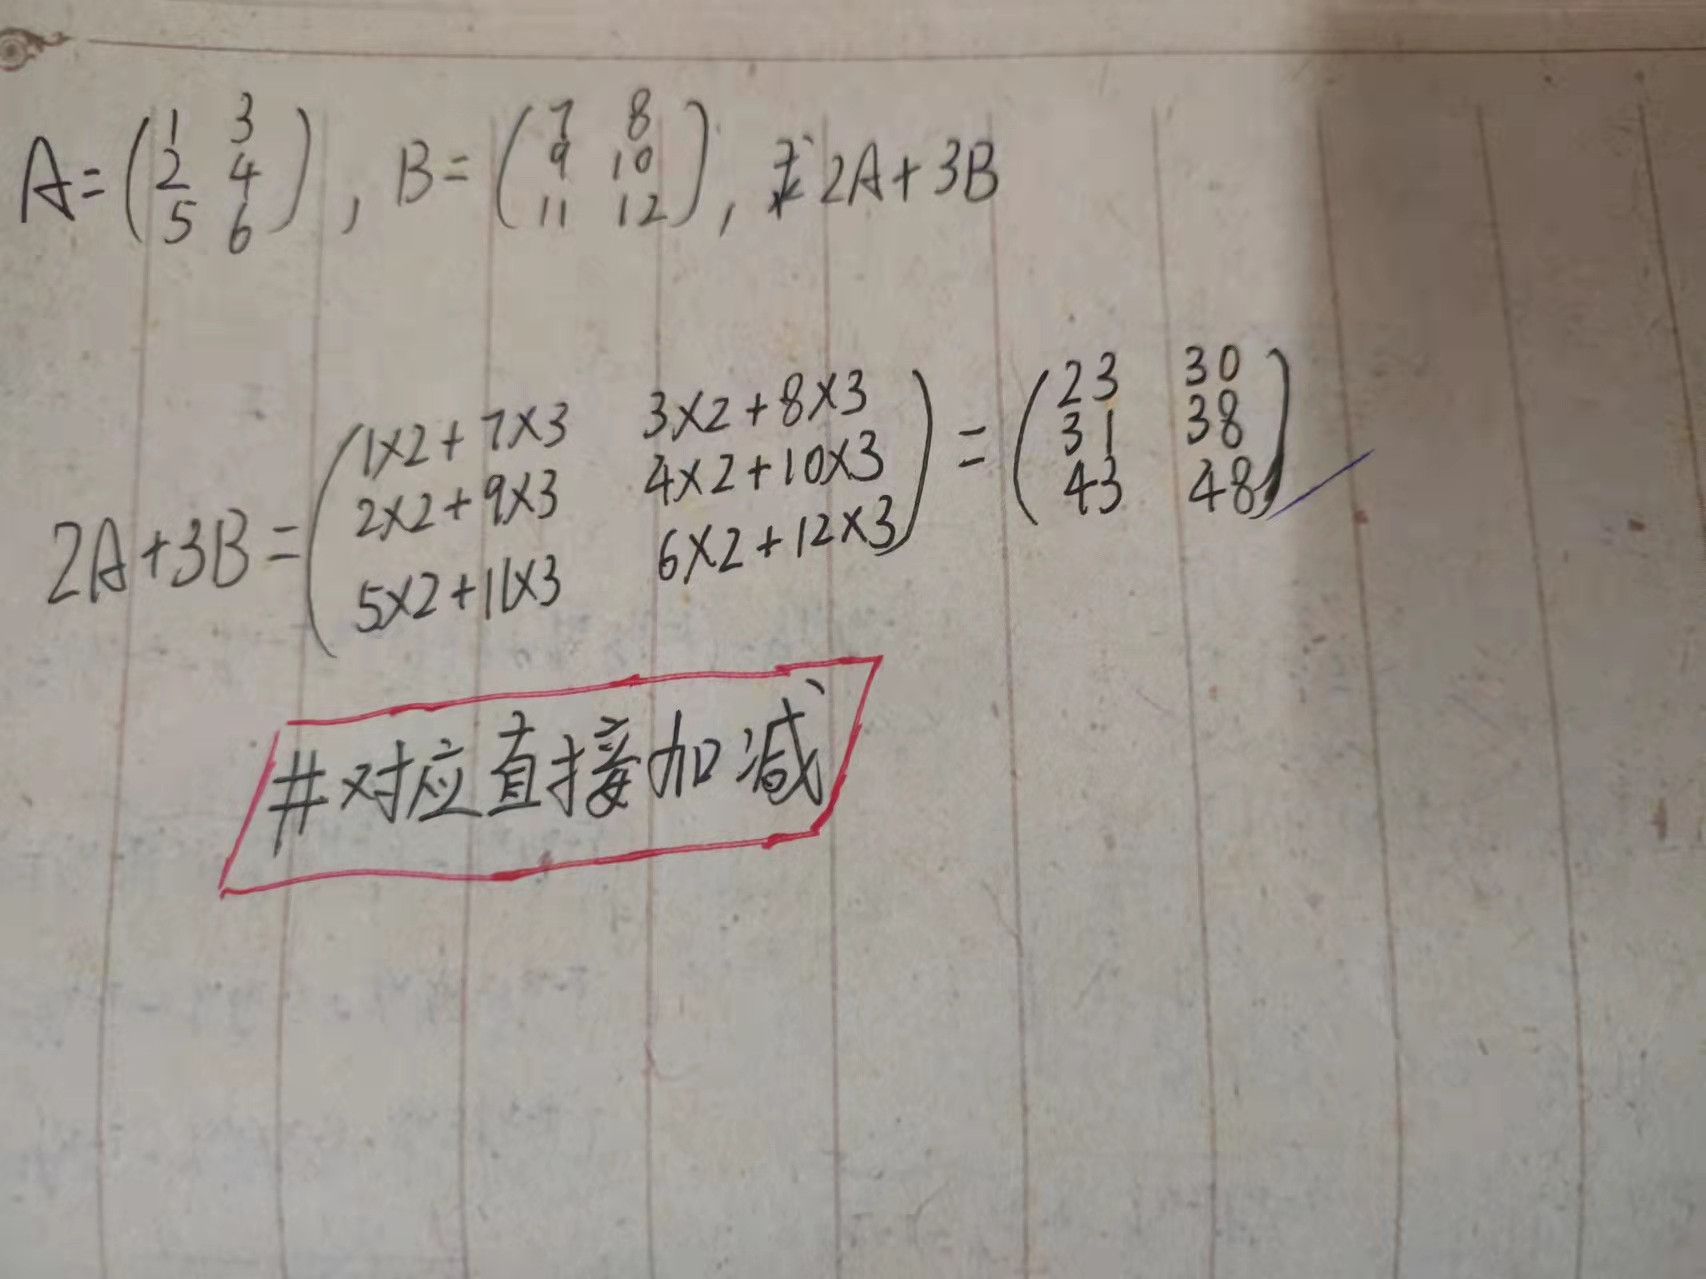 A=(1 3
2 4
5 6), B=(7 8
9 10
11 12), 求2A+3B
2A+3B=(1×2+7×3 3×2+8×3
2×2+9×3 4×2+10×3
5×2+11×3 6×2+12×3)=(23 30
31 38
43 48)
#对应直接加减